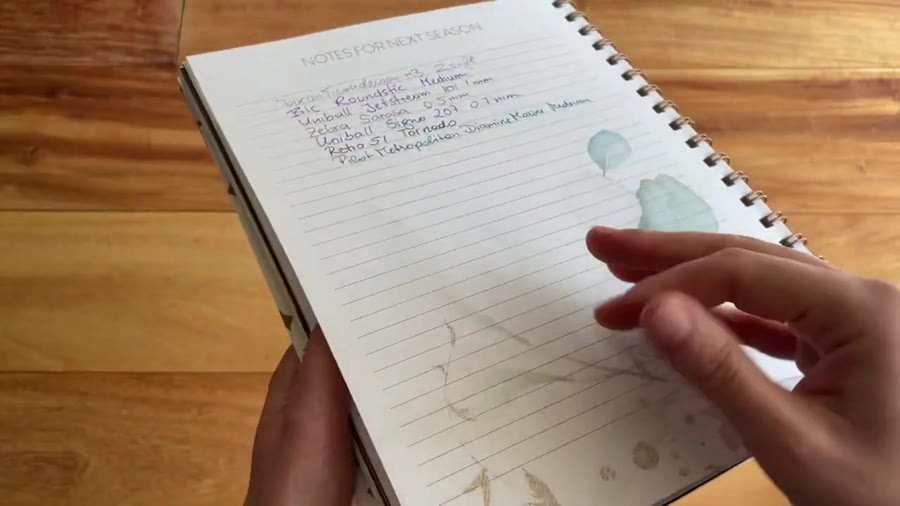 NOTES FOR NEXT SEASON
Tucan Ticonderoga #2
Bic Roundstic Medium
Uniball Jetstream 101 1 mm
Zebra Sarasa 0.5 mm
Uniball Signo 207 0.7 mm
Retro 51 Tornado
Pilot Metropolitan Diamine Marine Medium